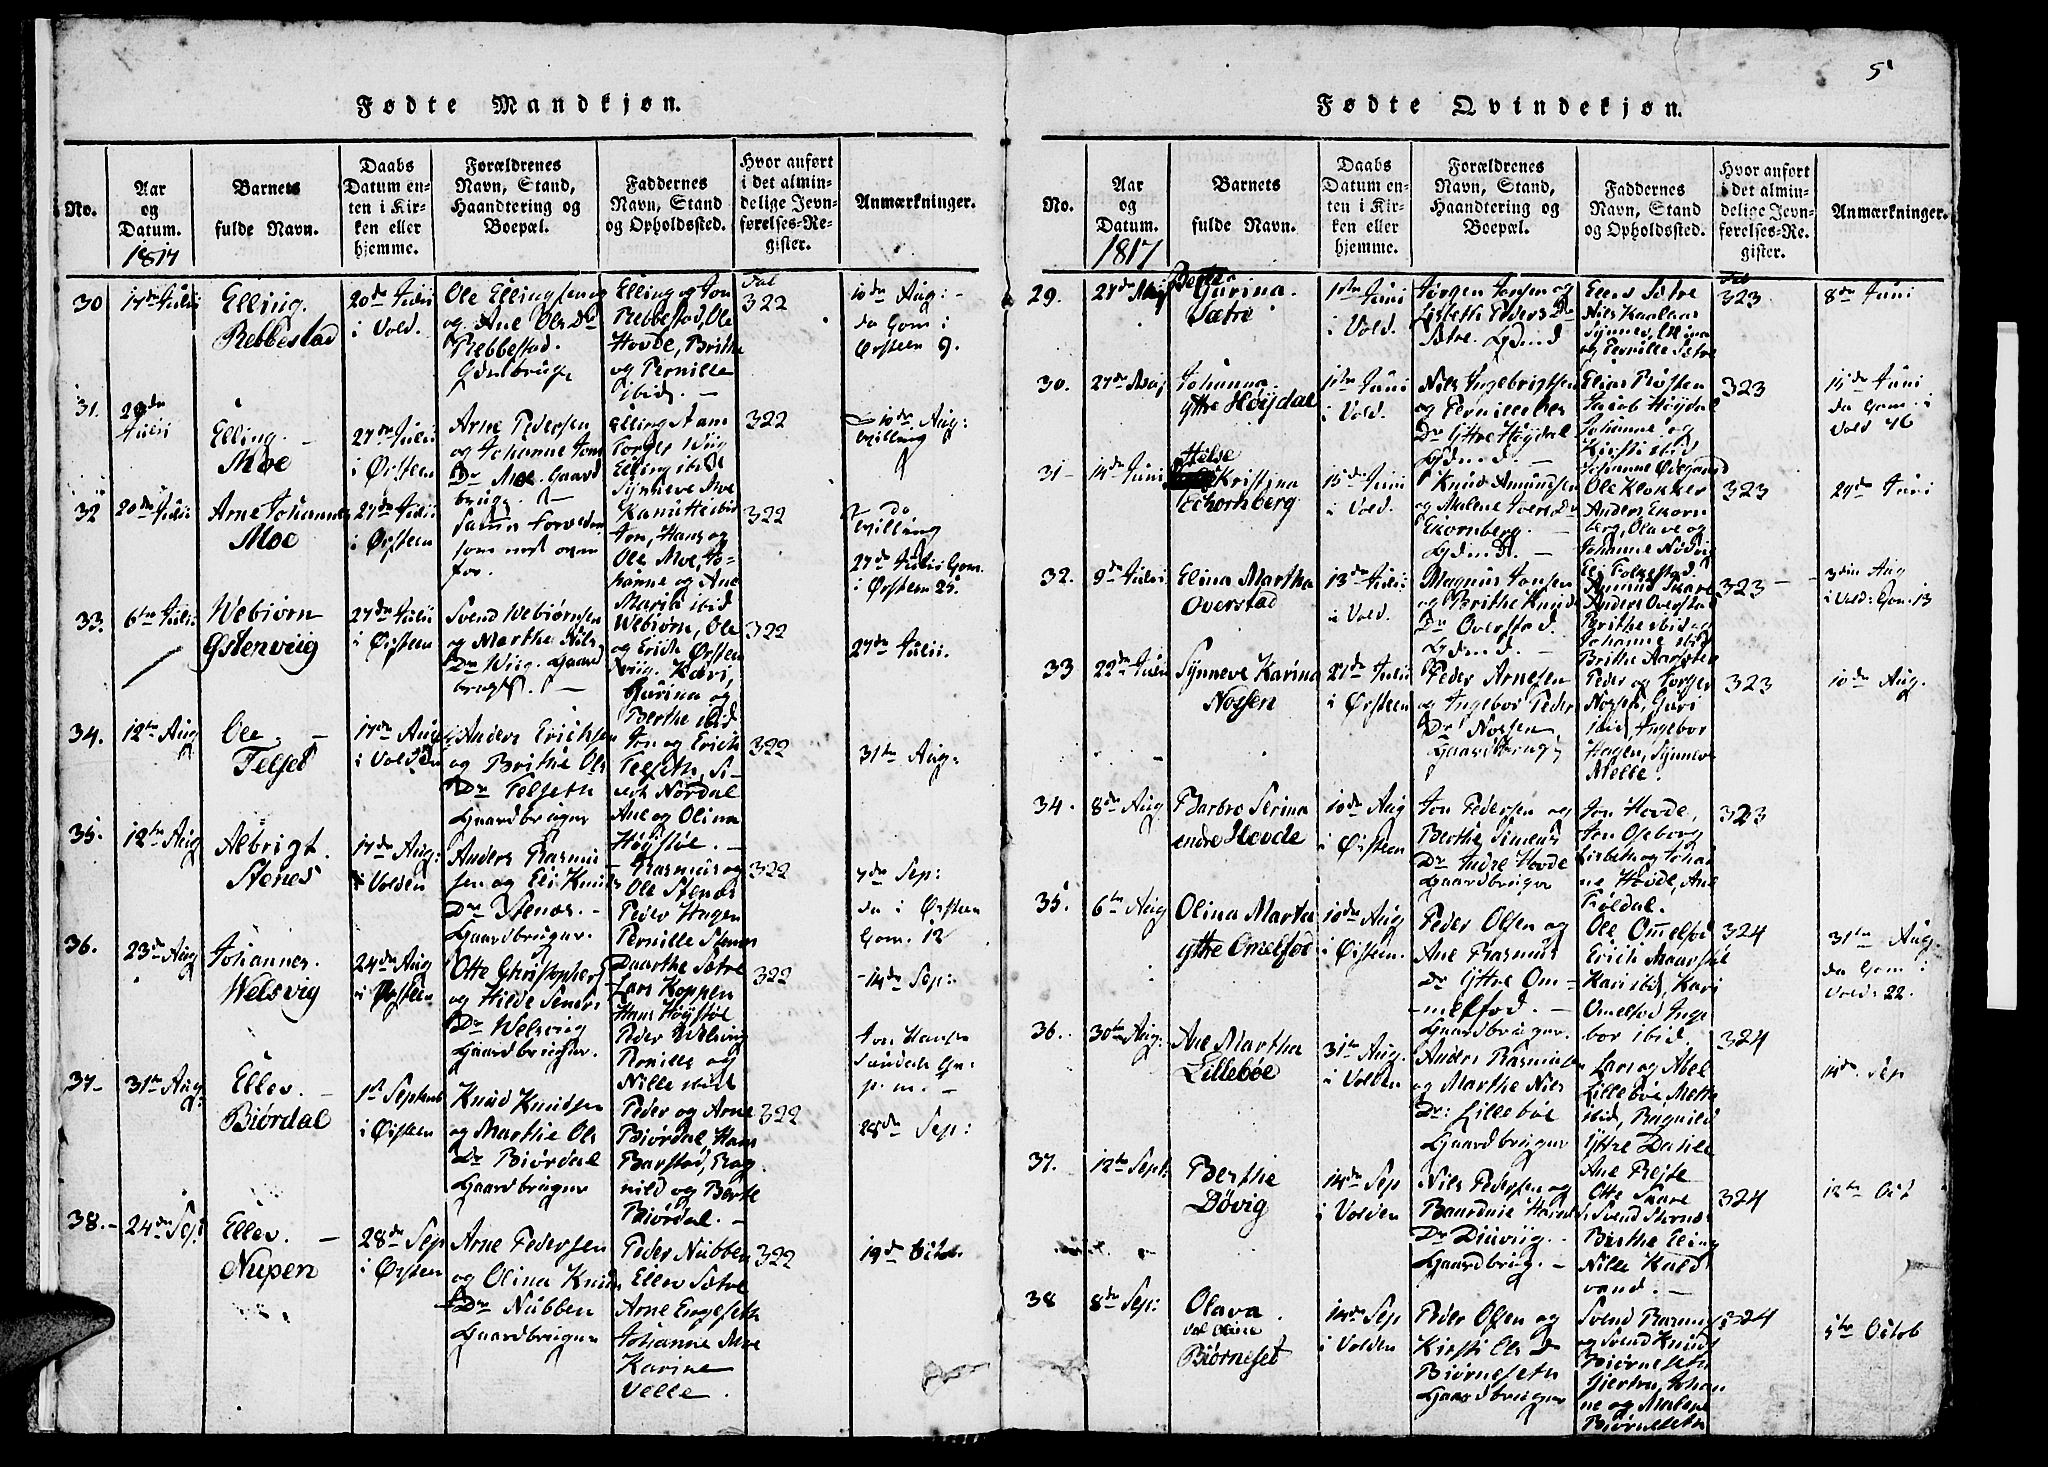 5
Fødte Mandkjøn.
No.
Aar
og
Datum.
1817
Barnets
fulde Navn.
Daabs
Datum en-
ten i Kir-
ken eller
hjemme.
Forældrenes
Navn, Stand,
Haandtering og
Boepæl.
Faddernes
Navn, Stand
og Opholdssted.
Hvor anført
i det almin-
delige Jevn-
førelses-Re-
gister.
Anmærkninger.
30
17de Julii
Elling
Rebbestad
20de Julii
i Vold.
Ole Ellingsen og
og Ane Ols Dr
Rebbestad.
Elling og Jon
Rebbestad, Ole
Hovde, Brithe
og Pernille
ibid. —
Fol
322
10de Aug:
da Gom i
Ørsteen 9.
31.
Julii
Elling. —
Moe
27de Julii
i Ørsteen
Arne Pedersen
og Johanne Jons
Dr Moe. Gaard
brug.
Elling ibid
Synneve Moe
322
10de Aug:
32
20de Julii
Arne Johannes
Moe
27de Julii
i Ørsteen
Samme Forældre
som næst oven
for.
Jon, Hans og
Ole Moe, Jo-
hanne og Ane
Maria ibid
322
27de Julii Gom.
i Ørsteen 25.
33.
6te Julii
Webiørn
Østenviig
27de Julii
i Ørsteen
Svend Webiørnsen
og Marthe Nils
Dr Wiig. Gaard
Webiørn, Ole
og Erich Østen
viig. Kari,
Gurina og
Berthe ibid
322
27de Julii.
34.
12te Aug
Ole —
Telset
17de Aug
i Volden
Anders Erichsen
og Brithe Ols
Dr Telseth
Gaardbruger
Jon og Erich
Telseth, Si-
vert Nordal
Ane og Olina
Høgistøl. —
322
31te Aug:
35.
12te Aug
Albrigt.
Stenes
17de Aug:
i Volden
Anders Rasmu-
sen og Eli Knuds
Dr Stenæs. —
Gaardbruger.
Rasmus og
Ole Stenæs
Peder Hagen
Pernille Stenes
322
7de Sep:
da i Ørsteen
Gom. 12
36.
23de Aug
Johannes.
Welsvig
24de Aug
i Ørsteen
Otte Christophers
og Hilde Simens
Dr Welsviig
Gaardbruger.
Daarthe Sætre
Lars Koppen
Hans Høystøl
Peder Welsvig
Pernille og
Nille ibid
322
14de Sep:
37
31te Aug
Ellev. —
Biørdal
1st Septemb
i Ørsteen
Knud Knudsen
og Marthe Ols
Dr Biørdal
Gaardbruger
Peder og Arne
Biørdal, Hans
Barstad, Rag
nild og Berte
Biørdal. —
322
28de Sep:
38.
24de Sep.
Ellev. —
Nupen
28de Sep
i Ørsteen
Arne Pedersen
og Olina Knuds
Dr Nubben
Gaardbruger
Peder Nubben
Ellev Sætre
Arne Engeseth
Johanne Moe
Karine
Velle.
322
19de Octob.
Fødte Qvindekjøn.
No.
Aar
og
Datum.
1817
Barnets
fulde Navn.
Daabs
Datum en-
ten i Kir-
ken eller
hjemme.
Forældrenes
Navn, Stand,
Haandtering og
Boepæl.
Faddernes
Navn, Stand
og Opholdssted.
Hvor anført
i det almin-
delige Jevn-
førelses-Re-
gister.
Anmærkninger.
29.
27de Maj
Gurina.
Sætre
1ste Juni
i Vold.
Jørgen Jonsen og
Sætre.
og Pernille Sætre
323
8de Juni
30.
27de Maj
Johanna
Yttre Høydal
1ste Juni
i Vold.
Nils Ingebrigtsen
Dr Yttre Høydal
Elias Røsten
Jacob Høydal
Johanne og
Kirsti ibid
Johanne Ødegaard
323
15de Juni
da Gom. i
Vold 46
31
14de Juni
Kristina
Echornberg
15de Juni
i Vold.
Knud Amundsen
og Malene Ivers Dr
Ekornberg. —
Ole Klokker
Anders Ekorn
berg, Olave og
Johanne Nødvig
323
29de Juni
32.
9de Julii
Elina Martha
Overstad
13de Julii
i Vold.
Magnus Jonsen
og Brithe Knuds
Dr Overstad.
Eli Folkestad
Amund Skare
Anders Overstad
Brithe ibid og
Johanne ibid
323
3die Aug
i Vold: Gom. 13
33
22de Julii
Synneve Karina
Nossen
27de Julii
i Ørsteen
Peder Arnesen
og Ingebor Peder
Dr Nossen,
Gaardbrug
Brithe Aarseten
Peder og Torger
Nossen, Guri
ibid, Ingebor
Hagen, Synneve
Melle.
323
10de Aug.
34.
8de Aug
Barbro Serina
indre Hovde
10de Aug
i Ørsteen
Jon Pedersen og
Berthe Simens
Dr Indre Hovde
Gaardbruger
Jon Hovde,
Jon Oseborg
Lisbeth og Johan
ne Hovde, Ane
Føldal.
323
35.
6te Aug
Olina Marta
Yttre Omelfod
10de Aug
i Ørsteen.
Peder Olsen og
Ane Rasmus
Dr Yttre Om-
melfod. —
Gaardbruger.
Ole Omelfod
Erich Maarstøl
Kari ibid, Kari
Omelfod Inge
bor ibid.
324
31te Aug.
da Gom. i
Vold: 22.
36.
30te Aug:
Ane Martha
Lillebøe
31te Aug.
i Volden
Anders Rasmusen
og Marthe Nils
Dr: Lillebøe
Gaardbruger
Lars og Abel
Lillebøe, Mette
ibid, Ragnild
Yttre Dahle
Ane Rejte
324
14de Sep
37.
12te Sept:
Berthe
Døvig
14de Sep
i Volden
Nils Pedersen og
Dr Diuviig. —
Gaardbrug. —
Otte Skare
Svend Stenæs
Berthe Eling
Nille Kald
vand. —
324
12te Oct
38
8de Sep:
Olava
vel Oline
Biørneset
14de Sep
i Volden
Peder Olsen og
Kirsti Ols D
Biørneseth
Gaardbruger
Svend Rasmus
og Svend Knuds
Biørneseth
Giertru, Johan
ne og Malene
Biørneseth
324
5te Octob